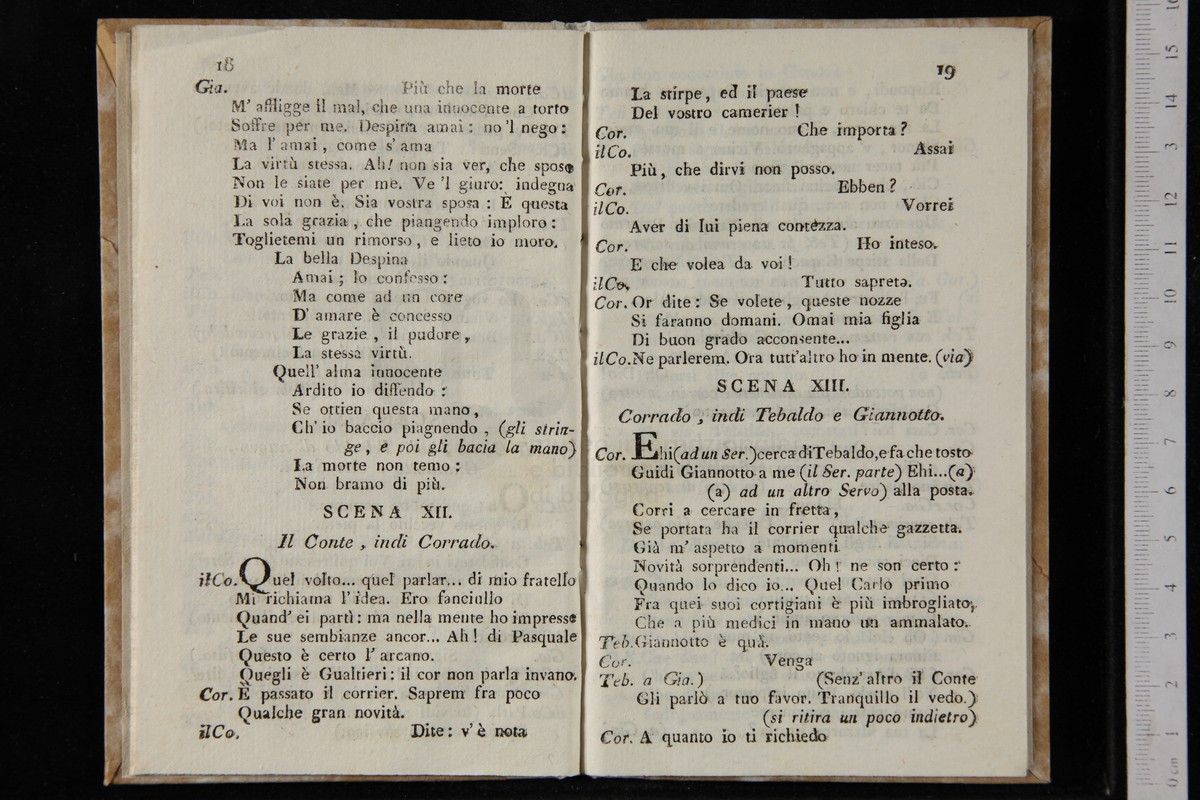 18
Gia. Più che la morte
M' affligge il mal, che una innocente a torto
Soffre per me. Despina amai: no 'l nego:
Ma l' amai, come s' ama
La virtù stessa. Ah! non sia ver, che sposo
Non le siate per me. Ve 'l giuro: indegna
Di voi non è. Sia vostra sposa: E questa
La sola grazia, che piangendo imploro:
Toglietemi un rimorso, e lieto io moro.
La bella Despina
Amai; lo confesso:
Ma come ad un core
D' amare è concesso
Le grazie, il pudore,
La stessa virtù.
Quell' alma innocente
Ardito io diffendo:
Se ottien questa mano,
Ch' io baccio piagnendo, (gli strin-
ge, e poi gli bacia la mano)
La morte non temo:
Non bramo di più.
SCENA XII.
Il Conte, indi Corrado.
il Co. Quel volto... quel parlar... di mio fratello
Mi richiama l' idea. Ero fanciullo
Quand' ei partì: ma nella mente ho impresse
Le sue sembianze ancor... Ah! di Pasquale
Questo è certo l' arcano.
Quegli è Gualtieri: il cor non parla invano.
Cor. E passato il corrier. Saprem fra poco
Qualche gran novità.
il Co. Dite: v' è nota
19
La stirpe, ed il paese
Del vostro camerier!
Cor. Che importa?
il Co. Assai
Più, che dirvi non posso.
Cor. Ebben?
il Co. Vorrei
Aver di lui piena contezza.
Cor. Ho inteso.
E che volea da voi!
il Co. Tutto saprete.
Cor. Or dite: Se volete, queste nozze
Si faranno domani. Omai mia figlia
Di buon grado acconsente...
il Co. Ne parlerem. Ora tutt'altro ho in mente. (via)
SCENA XIII.
Corrado, indi Tebaldo e Giannotto.
Cor. Ehi (ad un Ser.) cerca di Tebaldo, e fa che tosto
Guidi Giannotto a me (il Ser. parte) Ehi...(a)
(a) ad un altro Servo) alla posta.
Corri a cercare in fretta,
Se portata ha il corrier qualche gazzetta.
Già m' aspetto a momenti
Novità sorprendenti... Oh! ne son certo:
Quando lo dico io... Quel Carlo primo
Fra quei suoi cortigiani è più imbrogliato,
Che a più medici in mano un ammalato.
Teb. Giannotto è quà.
Cor. Venga
Teb. a Gia.) (Senz' altro il Conte
Gli parlò a tuo favor. Tranquillo il vedo.)
(si ritira un poco indietro)
Cor. A quanto io ti richiedo